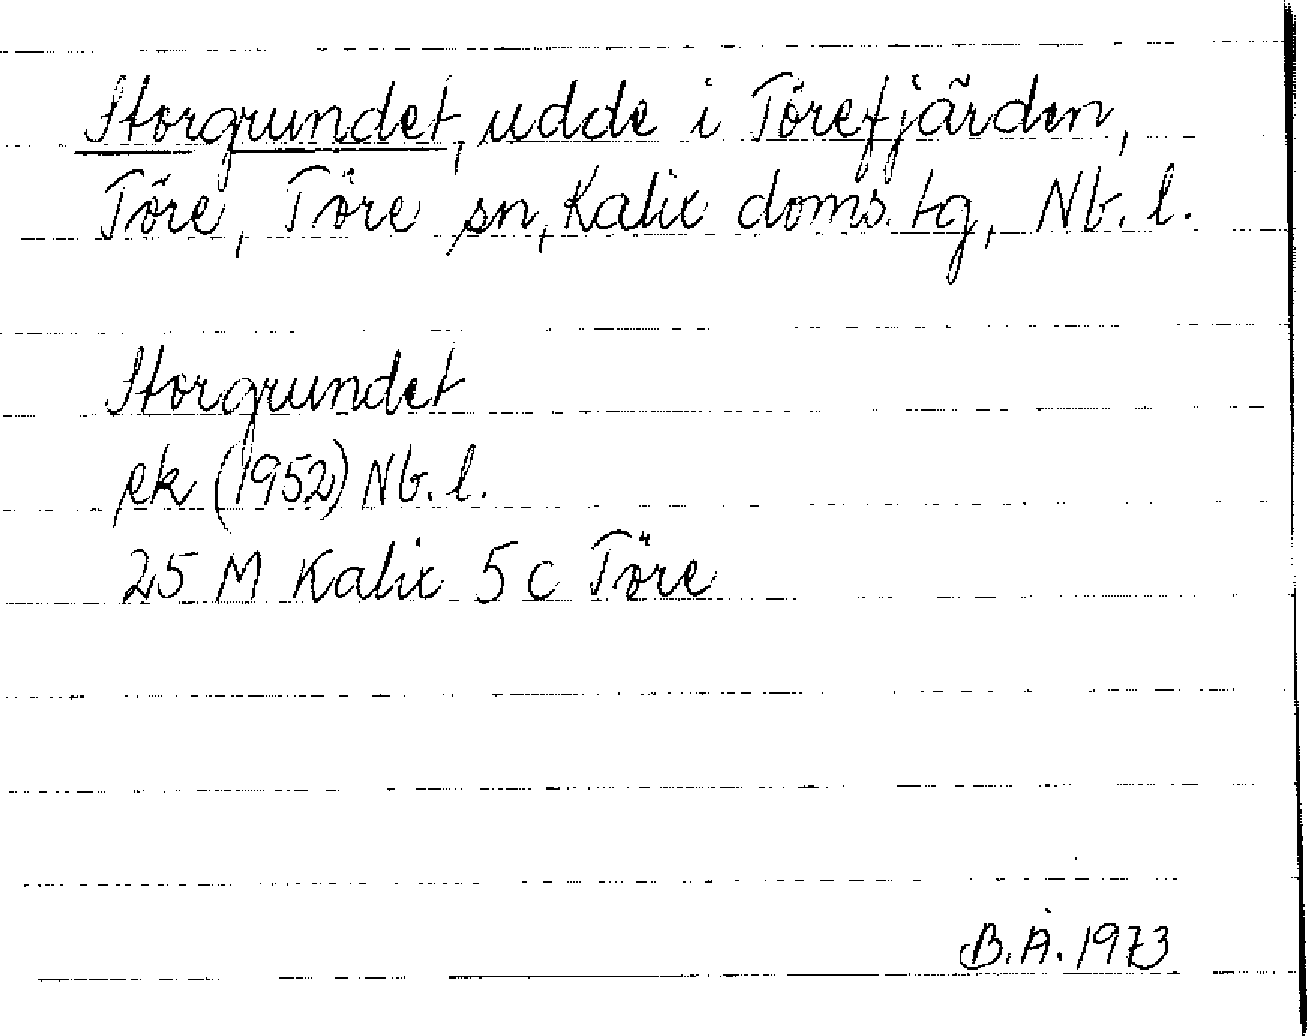 Storgrundet, udde i Törefjärden,
Töre, Töre sn, Kalix doms. tg, Nb. l.
Storgrundet
ek (1952) Nb. l.
25 M Kalix 5 c Töre
B.Å. 1973